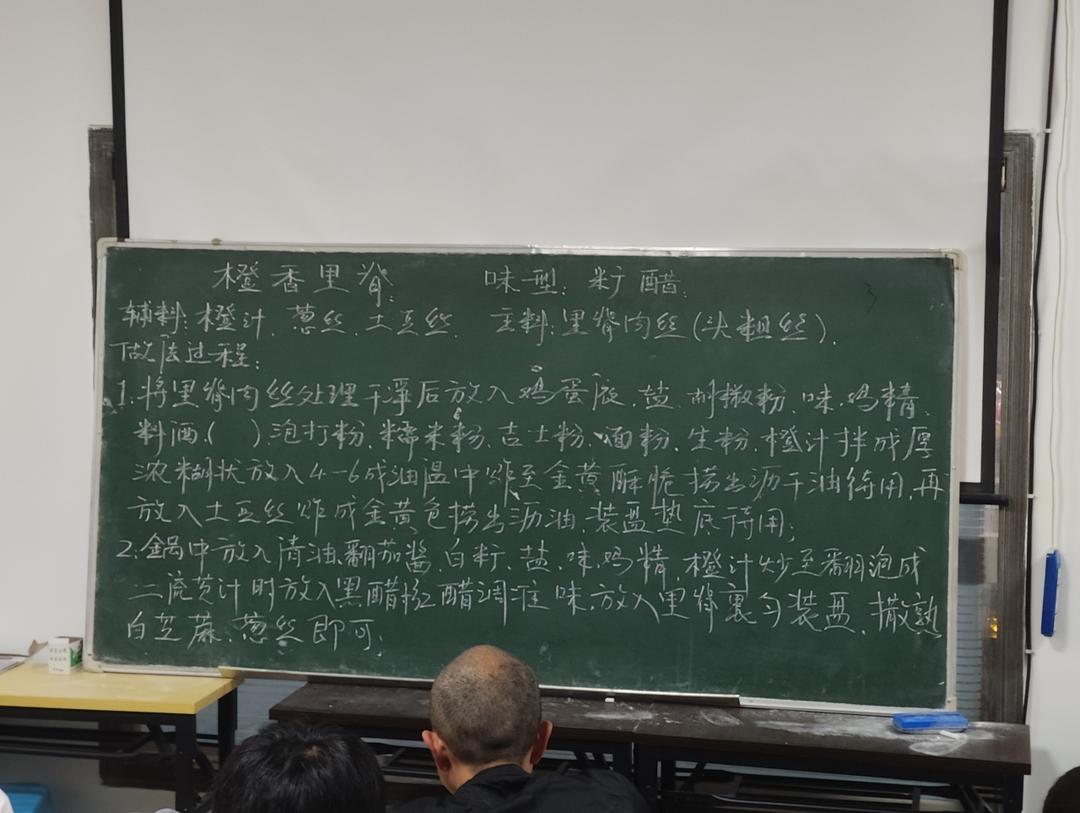 橙香里脊: 味型: 籵醋:
辅料: 橙汁. 葱丝. 土豆丝. 主料: 里脊肉丝(头粗丝).
做法过程:
1. 将里脊肉丝处理干净后放入鸡蛋液. 盐. 胡椒粉. 味. 鸡精.
料酒.( ).泡打粉. 糯米粉. 吉士粉. 面粉. 生粉. 橙汁拌成厚
浓糊状放入4-6成油温中炸至金黄酥脆捞出沥干油待用, 再
放入土豆丝炸成金黄色捞出沥油. 装盘垫底待用;
2: 锅中放入清油. 番茄酱 白籵. 盐. 味. 鸡精. 橙汁炒至翻泡成
二流芡汁时放入黑醋 红醋调准味. 放入里脊裹匀装盘. 撒熟
白芝蔴. 葱丝即可;